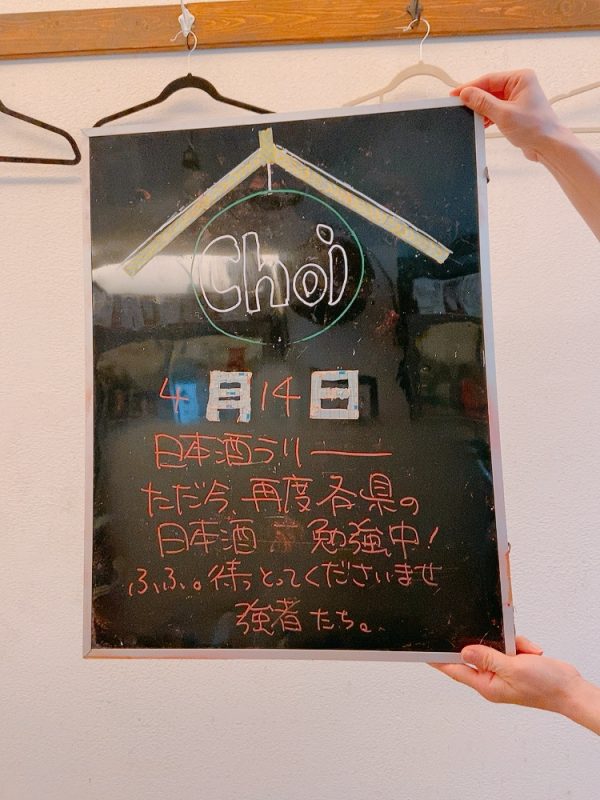 Choi
4月14日
日本酒ラリー
ただ今、再度各県の
日本酒 勉強中!
ふふ。待っとってくださいませ
強者たち。